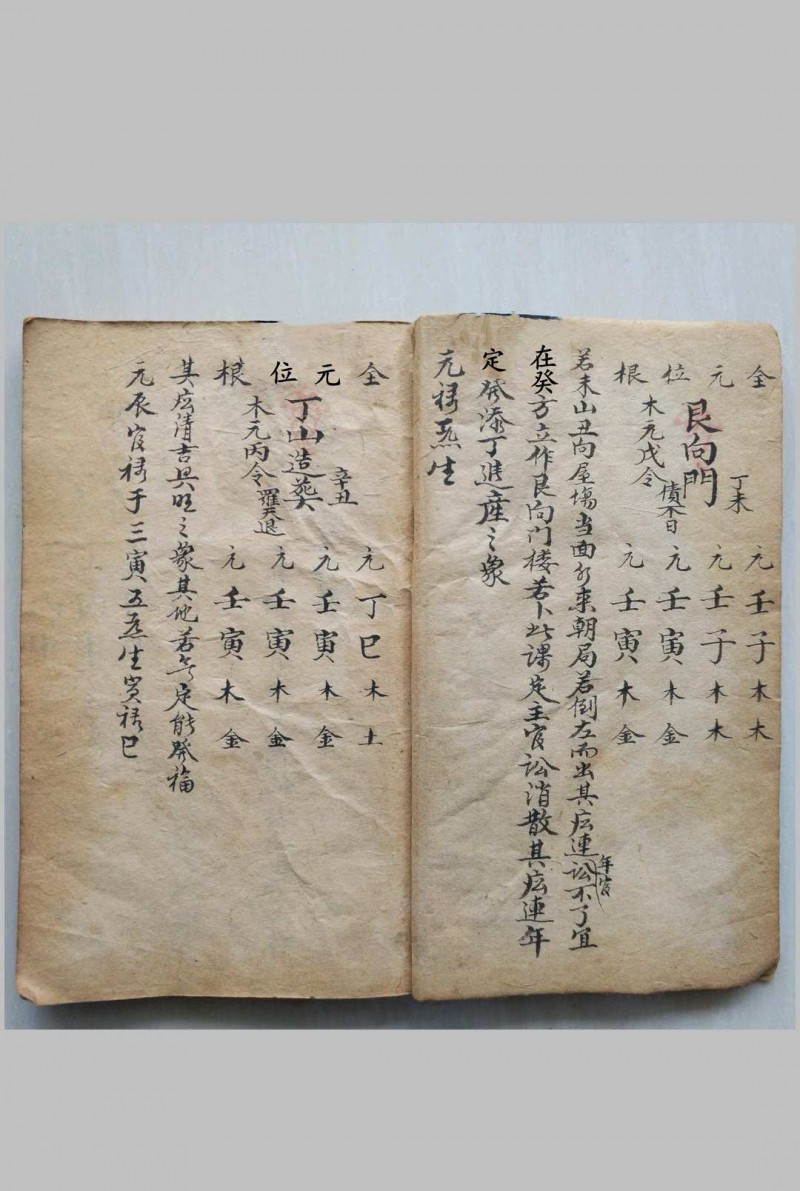 全 元 位 根
艮向門
丁未
木元戊令
債不日
元壬子木木
元壬子木木
元壬寅木金
元壬寅木金
若未山丑向屋場当面水来朝局若倒左而出其応連年官訟不了宜
在癸方立作艮向门楼若卜此课定主官訟消散其応連年
定發添丁進産之象
元禄
生
全 元 位 根
丁山造葬
辛丑
木元丙令
羅天退
元丁巳木土
元壬寅木金
元壬寅木金
元壬寅木金
其応清吉兴旺之象其他若定能發福
元辰官禄于三寅五生官禄巳